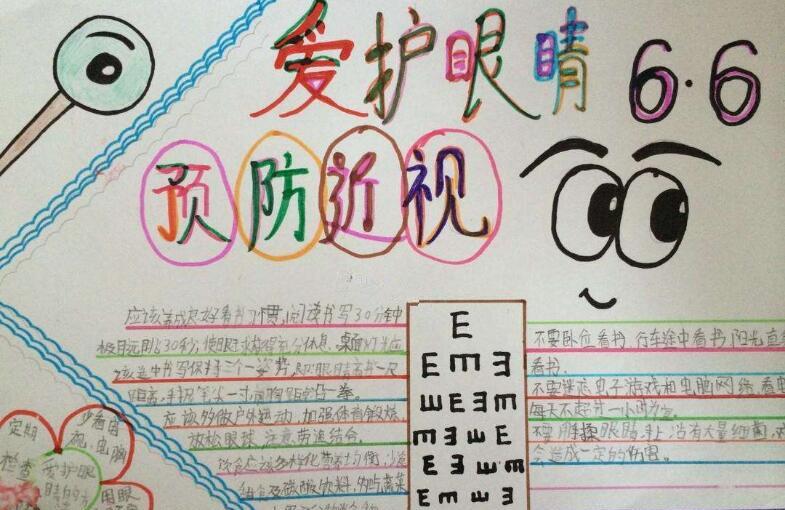 爱护眼睛 6·6
预防近视
应该养成良好看书习惯,阅读书写30分钟
极目远眺630秒,使眼睛得到充分休息,桌面灯光应
该适中书写保持三个一姿势,即:眼睛离书一尺
距离,手指笔尖一寸前胸距桌沿一拳。
应该多做户外运动,加强体育锻炼,
放松眼球,注意劳逸结合。
饮食应该多样化营养均衡,少
碳酸饮料,
E
E m Ǝ
ш E Ǝ m
m Ǝ ш E
E Ǝ ш m
E m ш Ǝ
不要卧位看书,行车途中看书,阳光直
看书.
不要迷恋电子游戏和电脑网络,看电
每天不超过一小时为宜。
不要用手揉眼睛,手上沾有大量细菌,
会造成一定的伤害。
定期
检查
少看电
视、电脑
爱护眼
睛的